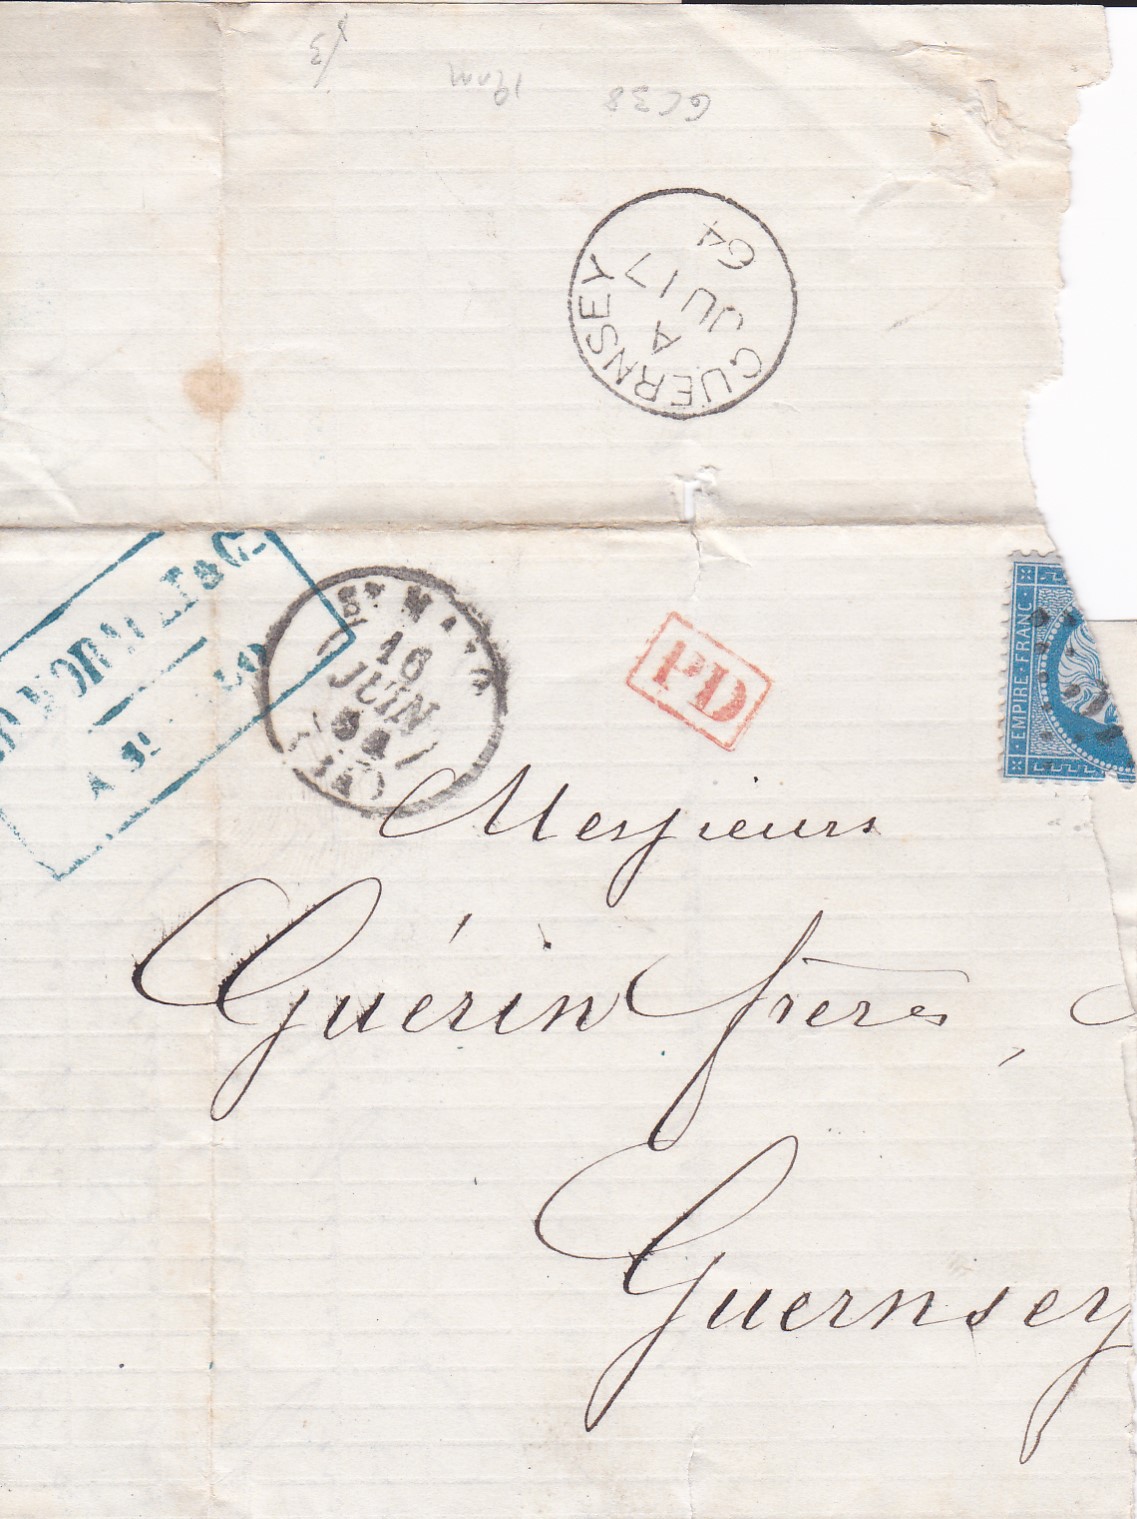 GC 38
GUERNSEY
A
JU 17
64
& Cie
A St MALO
ST MALO
16
JUIN
64
PD
EMPIRE · FRANC
Messieurs
Guérin frères,
Guernsey